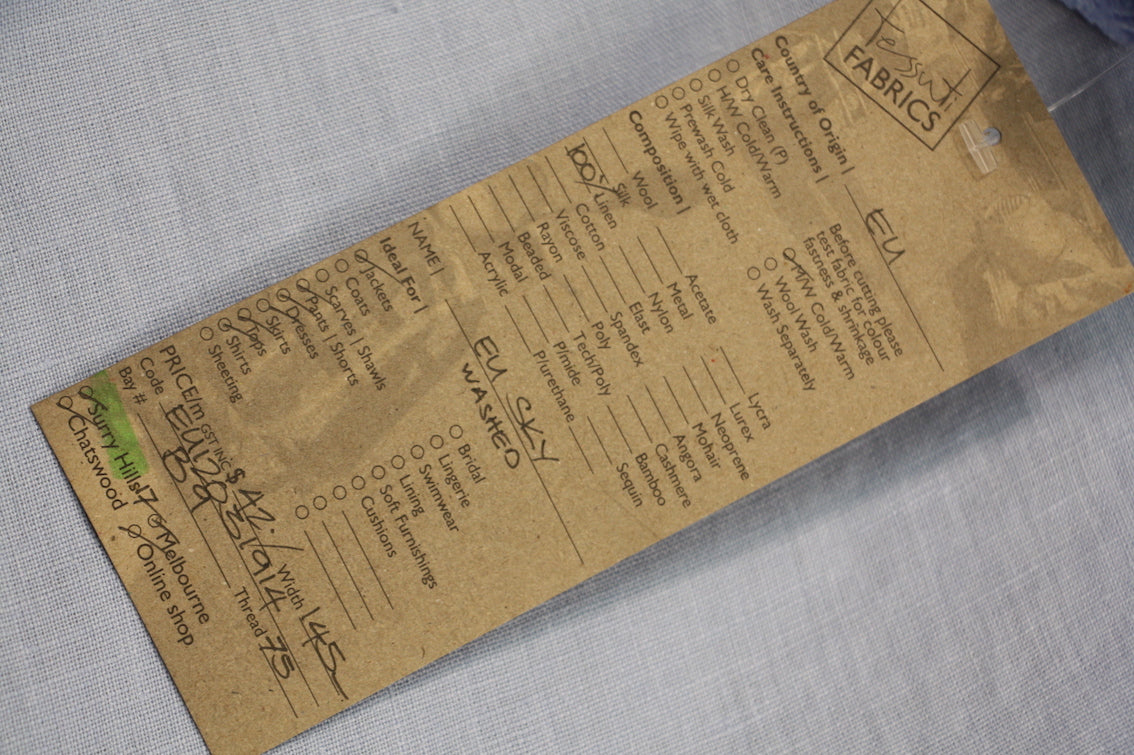 Tessuti
FABRICS
Country of Origin | EU
Care Instructions |
Dry Clean (P)
H/W Cold/Warm
Silk Wash
Prewash Cold
Wipe with wet cloth
Before cutting please
test fabric for colour
fastness & shrinkage
M/W Cold/Warm
Wool Wash
Wash Separately
Composition |
Wool
Silk
100% Linen
Cotton
Viscose
Rayon
Beaded
Modal
Acrylic
Acetate
Metal
Nylon
Elast
Spandex
Poly
Tech/Poly
P/mide
P/urethane
Lycra
Lurex
Neoprene
Mohair
Angora
Cashmere
Bamboo
Sequin
NAME | EU SKY
WASHED
Ideal For |
Jackets
Coats
Scarves | Shawls
Pants | Shorts
Dresses
Skirts
Tops
Shirts
Sheeting
Bridal
Lingerie
Swimwear
Lining
Soft Furnishings
Cushions
PRICE/m GST INC $42./ Width 145
Code EU1293 1914
Bay # B91 Thread 75
Surry Hills 17 Melbourne
Chatswood Online shop